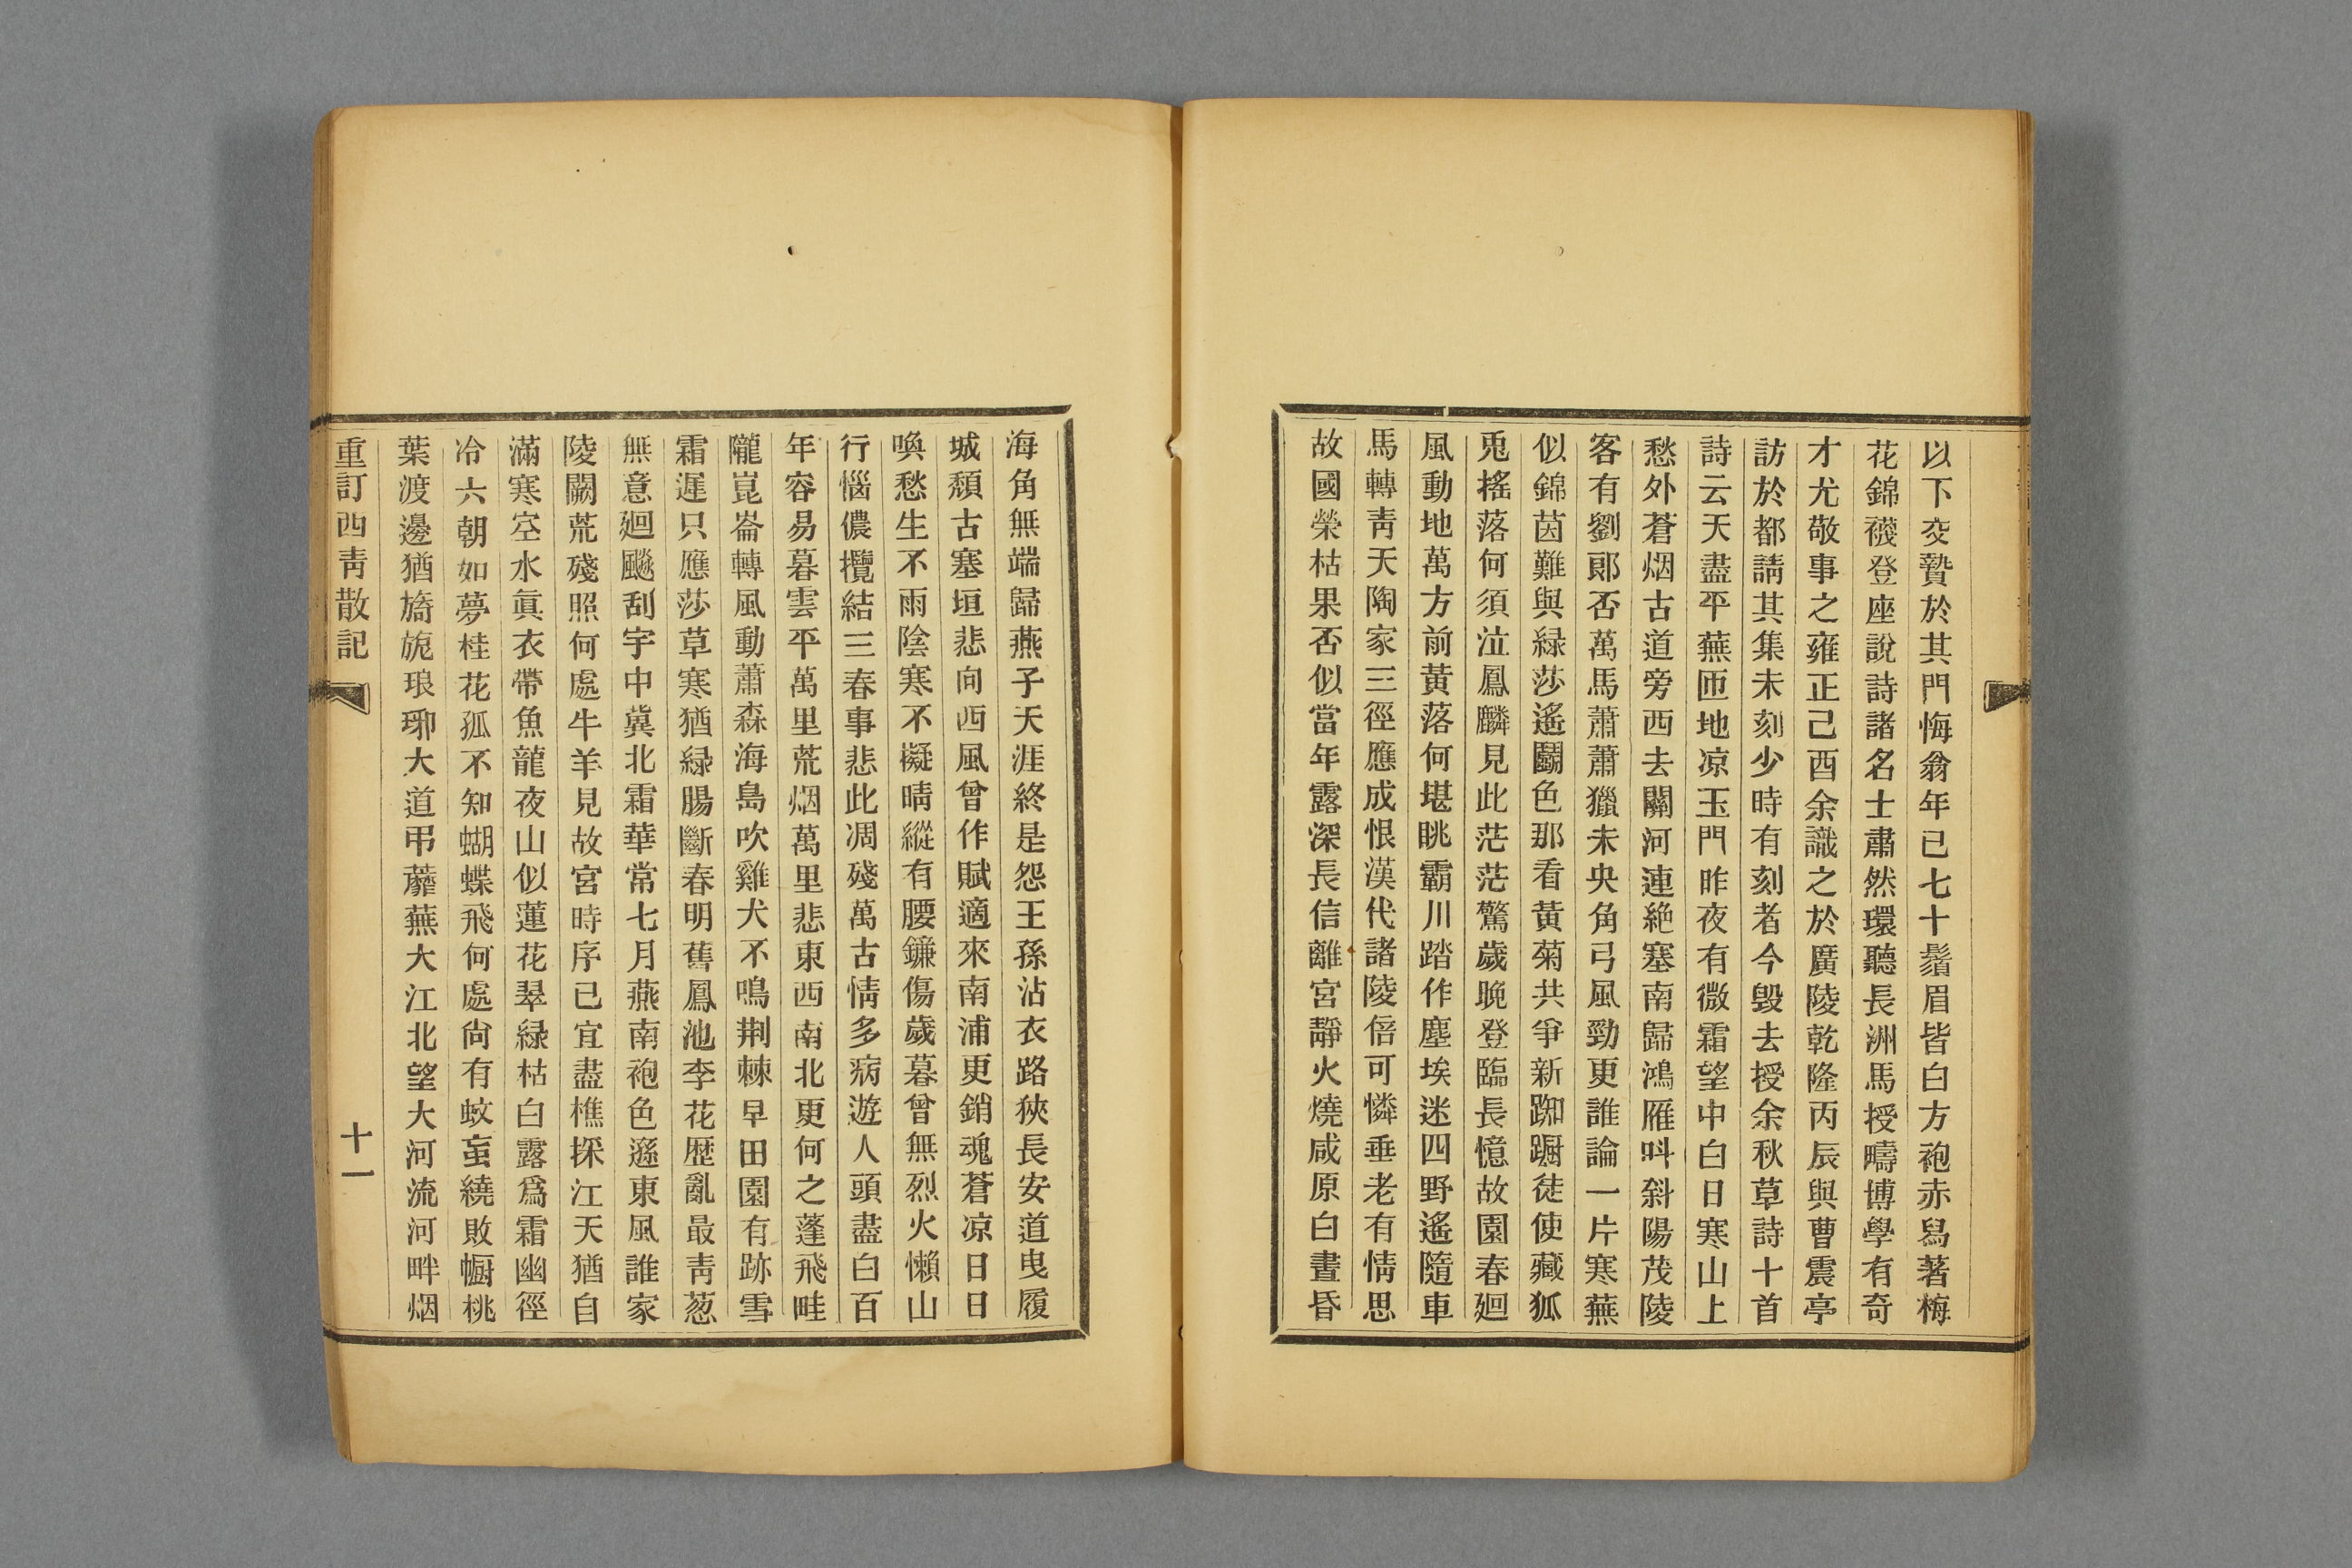 以下交贄於其門悔翁年已七十鬚眉皆白方袍赤舄著梅
花錦襪登座說詩諸名士肅然環聽長洲馬授疇博學有奇
才尤敬事之雍正己酉余識之於廣陵乾隆丙辰與曹震亭
訪於都請其集未刻少時有刻者今毀去授余秋草詩十首
詩云天盡平蕪匝地凉玉門昨夜有微霜望中白日寒山上
愁外蒼烟古道旁西去關河連絶塞南歸鴻雁呌斜陽茂陵
客有劉郞否萬馬蕭蕭獵未央角弓風勁更誰論一片寒蕪
似錦茵難與緑莎遙鬭色那看黃菊共爭新踟蹰徒使藏狐
兎搖落何須泣鳳麟見此茫茫驚歲晚登臨長憶故園春廻
風動地萬方前黃落何堪眺霸川踏作塵埃迷四野遙隨車
馬轉靑天陶家三徑應成恨漢代諸陵倍可憐垂老有情思
故國榮枯果否似當年露深長信離宮靜火燒咸原白晝昏
海角無端歸燕子天涯終是怨王孫沾衣路狹長安道曳履
城頹古塞垣悲向西風曾作賦適來南浦更銷魂蒼凉日日
喚愁生不雨陰寒不擬晴縱有腰鐮傷歲暮曾無烈火懶山
行惱儂攬結三春事悲此凋殘萬古情多病遊人頭盡白百
年容易暮雲平萬里荒烟萬里悲東西南北更何之蓬飛畦
隴崑崙轉風動蕭森海島吹雞犬不鳴荆棘早田園有跡雪
霜遲只應莎草寒猶緑腸斷春明舊鳳池李花歷亂最靑葱
無意廻飈刮宇中冀北霜華常七月燕南袍色遜東風誰家
陵闕荒殘照何處牛羊見故宮時序已宜盡樵採江天猶自
滿寒空水眞衣帶魚龍夜山似蓮花翠緑枯白露爲霜幽徑
冷六朝如夢桂花孤不知蝴蝶飛何處尙有蚊䖟繞敗㡡桃
葉渡邊猶旖旎琅琊大道弔蘼蕪大江北望大河流河畔烟
重訂西靑散記
十一